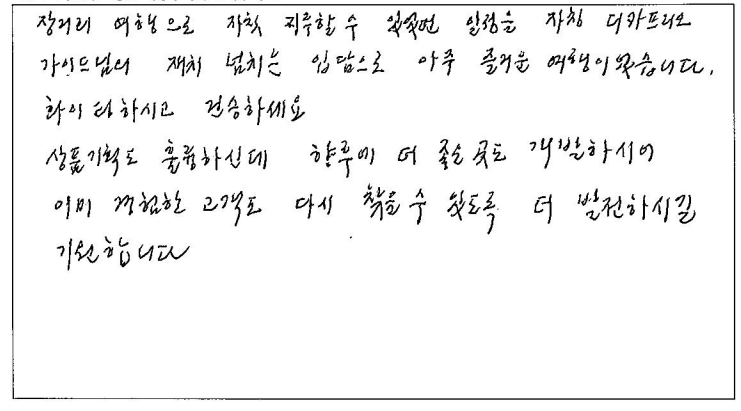 장거리 여행으로 자칫 지루할 수 있었던 일정을 자칭 디카프리오
가이드님의 재치 넘치는 입담으로 아주 즐거운 여행이었습니다.
화이팅하시고 건승하세요
상품기획도 훌륭하신데 향후에 더 좋은 곳도 개발하시어
이미 경험한 고객도 다시 찾을 수 있도록 더 발전하시길
기원합니다